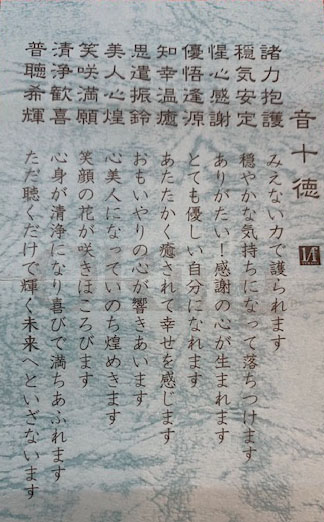 音十徳
諸力抱護 みえない力で護られます
穏気安定 穏やかな気持ちになって落ちつけます
惺心感謝 ありがたい！感謝の心が生まれます
優悟逢源 とても優しい自分になれます
知幸温癒 あたたかく癒されて幸せを感じます
思遣振鈴 おもいやりの心が響きあいます
美人心煌 心美人になっていのち煌めきます
笑咲満願 笑顔の花が咲きほころびます
清浄歓喜 心身が清浄になり喜びで満ちあふれます
普聴希輝 ただ聴くだけで輝く未来へといざないます